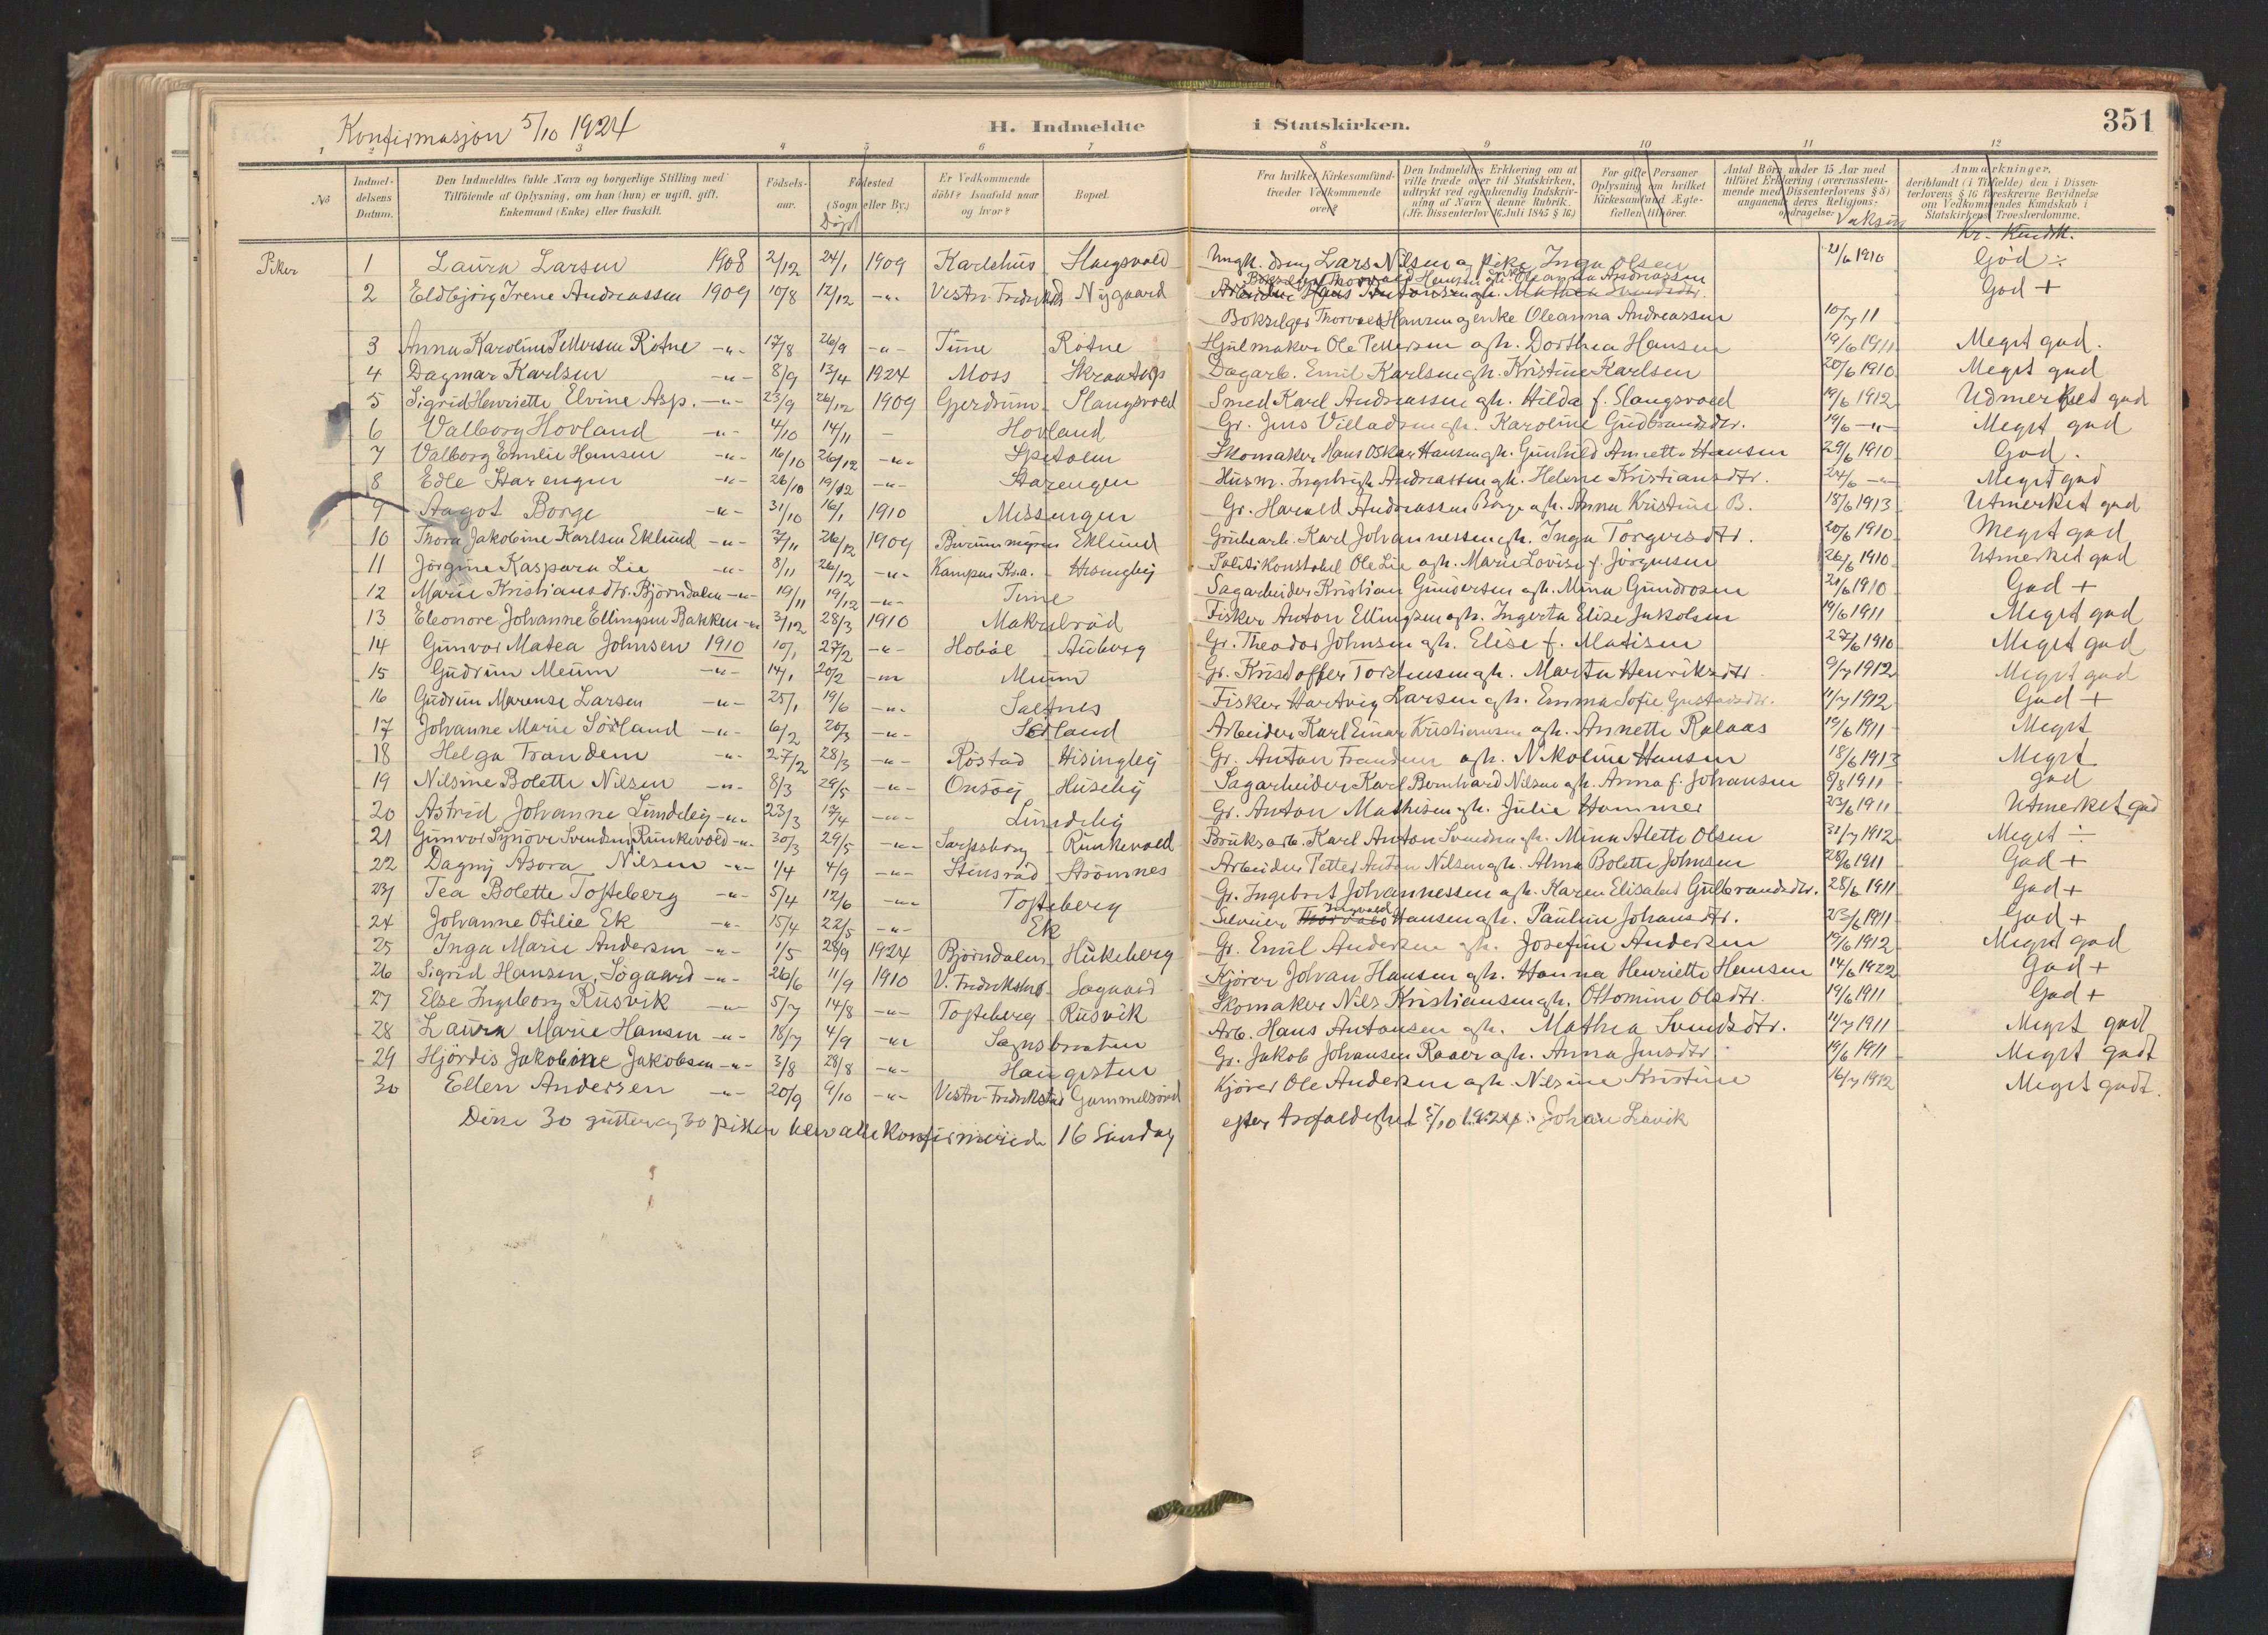 Konfirmasjon 5/10 1924
H. Indmeldte i Statskirken. 351
1 2 3 4 5 6 7 8 9 10 11 12
No
Indmeldelsens Datum.
Den Indmeldtes fulde Navn og borgerlige Stilling med Tilføiende af Oplysning, om han (hun) er ugift, gift, Enkemand (Enke) eller fraskilt.
Fødselsaar.
Fødested (Sogn eller By.)
Døpt
Er Vedkommende döbt? Isaafald naar og hvor?
Bopæl.
Fra hvilket Kirkesamfund træder Vedkommende over?
Den Indmeldtes Erklæring om at ville træde over til Statskirken, udtrykt ved egenhændig Indskrivning af Navn i denne Rubrik. (Jfr. Dissenterlov 16 Juli 1845 § 16)
For gifte Personer Oplysning om hvilket Kirkesamfund Ægtefællen tilhører.
Antal Börn under 15 Aar med tilføiet Erklæring (overensstemmende med Dissenterlovens § 8) angaaende deres Religionsopdragelse.
Vaksin
Anmærkninger, deriblandt (i Tilfælde) den i Dissenterlovens § 16 foreskrevne Bevidnelse om Vedkommendes Kundskab i Statskirkens Troeslærdomme.
Kr. Kundsk.
Piker 1 Laura Larsen 1908 2/12 24/1 1909 Karlshus Slangsvold Ungk. dreng Lars Nilsen og pike Inga Olsen 21/6 1910 God ÷
2 Eldbjørg Irene Andreassen 1909 10/8 12/12 -"- Vestr. Fredrikst. Nygaard Arbeider Hans Antonsen gh. Mathea Svendsdtr. God +
Bokselger Thorvald Hansen og enke Oleanna Andreassen 10/7 11
3 Anna Karoline Pettersen Rotne -"- 17/8 26/9 -"- Tune Rotne Hjulmaker Ole Pettersen gh. Dorthea Hansen 19/6 1911 Meget god.
4 Dagmar Karlsen -"- 8/9 13/4 1924 Moss Dagarb. Emil Karlsen gh. Kristine Karlsen 20/6 1910 Meget god
5 Sigrid Henriette Elvine Asp. -"- 23/9 26/12 1909 Gjerdrum Slangsvold Smed Karl Andreassen gh. Hilda f. Slangsvold 19/6 1912 Udmerket god
6 Valborg Hovland -"- 4/10 14/11 - Hovland Gr. Jens Villadsen gh. Karoline Gudbrandsdtr. 19/6 -"- Meget god
7 Valborg Emilie Hansen -"- 16/10 26/12 -"- Skomaker Hans Oskar Hansen gh. Gunhild Annette Hansen 29/6 1910 God.
8 Edle Starengen -"- 26/10 19/12 -"- Starengen Husm. Ingebrigt Andreassen gh. Helene Kristiansdtr. 24/6 -"- Meget god
9 Aagot Borge -"- 31/10 16/1 1910 Missingen Gr. Harald Andreassen Borge gh. Anna Kristine B. 18/6 1913 Utmerket god
10 Thora Jakobine Karlsen Eklund -"- 7/11 26/12 1909 Eklund Grubearb. Karl Johannessen gh. Inga Torgersdtr. 20/6 1910 Meget god
11 Jørgine Kaspara Lie -"- 8/11 26/12 -"- Kampen Kr.a. Husingby Politikonstabel Ole Lie gh. Marie Lovise f. Jørgensen 26/6 1910 Utmerket god
12 Marie Kristiansdtr. Bjørndalen -"- 19/11 19/12 -"- Tune Sagarbeider Kristian Gundersen gh. Mina Gundrosen 20/6 1910 God +
13 Eleonore Johanne Ellingsen Bakken -"- 3/12 28/3 1910 Makrelrød Fisker Anton Ellingsen gh. Ingerta Elise Jakobsen 19/6 1911 Meget god
14 Gunvor Matea Johnsen 1910 10/1 27/2 -"- Hobøl Auberg Gr. Theodor Johnsen gh. Elise f. Matisen 27/6 1910 Meget god
15 Gudrun Meum -"- 14/1 20/2 -"- Meum Gr. Kristoffer Torstensen gh. Marta Henriksdtr. 9/7 1912 Meget god
16 Gudrun Marense Larsen -"- 25/1 19/6 -"- Saltnes Fisker Hartvig Larsen gh. Emma Sofie Gustavsdtr. 11/7 1912 God +
17 Johanne Marie Sørland -"- 6/2 20/3 -"- Sørland Arbeider Karl Einar Kristiansen gh. Annette Rolaas 19/6 1911 Meget
18 Helga Frandem -"- 27/2 28/3 -"- Rostad Hisingby Gr. Anton Frandem gh. Nikoline Hansen 18/6 1913 Meget
19 Nilsine Bolette Nilsen -"- 8/3 29/5 -"- Onsøy Huseby Sagarbeider Karl Bernhard Nilsen gh. Anna f. Johansen 8/8 1911 god
20 Astrid Johanne Lundeby -"- 23/3 17/4 -"- Lundeby Gr. Anton Mathisen gh. Julie Hammer 23/6 1911 Utmerket god
21 Gunvor Synøve Svendsen Runkevold -"- 30/3 29/5 -"- Sarpsborg Runkevold Bruksarb. Karl Anton Svendsen gh. Mina Alette Olsen 31/7 1912 Meget ÷
22 Dagny Asora Nilsen -"- 1/4 4/9 -"- Stensrød Strømnes Arbeider Petter Anton Nilsen gh. Alma Bolette Johnsen 28/6 1911 God +
23 Tea Bolette Tofteberg -"- 5/4 12/6 -"- Tofteberg Gr. Ingebret Johannessen gh. Karen Elisabet Gulbrandsdtr. 28/6 1911 God +
24 Johanne Otilie Ek -"- 15/4 22/5 -"- Ek Selveier Thorvald Ingvald Hansen gh. Pauline Johansdtr. 23/6 1911 God +
25 Inga Marie Andersen -"- 1/5 28/9 1924 Bjørndalen Hukeberg Gr. Emil Andersen gh. Josefine Andersen 19/6 1912 Meget god
26 Sigrid Hansen Søgaard -"- 26/6 11/9 1910 V. Fredrikstad Søgaard Kjører Johan Hansen gh. Hanna Henriette Hansen 14/6 1922 God +
27 Else Ingeborg Rusvik -"- 5/7 14/8 -"- Tofteberg Rusvik Skomaker Nils Kristiansen gh. Ottomine Olsdtr. 19/6 1911 God +
28 Laura Marie Hansen -"- 18/7 4/9 -"- Sognsbraten Arb. Hans Antonsen gh. Mathea Svendsdtr. 11/7 1911 Meget godt
29 Hjørdis Jakobine Jakobsen -"- 3/8 28/8 -"- Haugesten Gr. Jakob Johansen Raaer gh. Anna Jensdtr. 19/6 1911 Meget godt
30 Ellen Andersen -"- 20/9 9/10 -"- Vestre Fredrikstad Gammelsrød Kjører Ole Andersen gh. Nilsine Kristine 16/7 1912 Meget godt.
Disse 30 gutter og 30 piker blev alle konfirmerede 16 Søndag efter Trefoldighed 5/10 1924. Johan Lavik